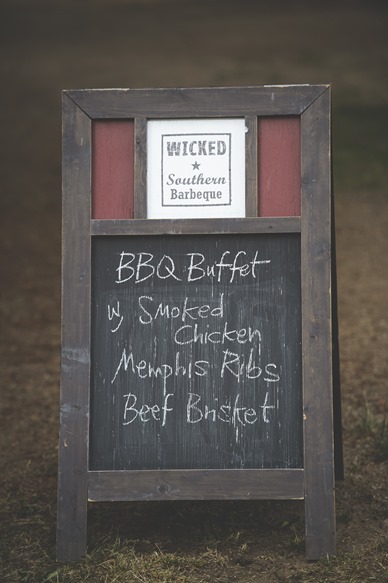 WICKED
Southern
Barbeque
BBQ Buffet
w/ Smoked
Chicken
Memphis Ribs
Beef Brisket